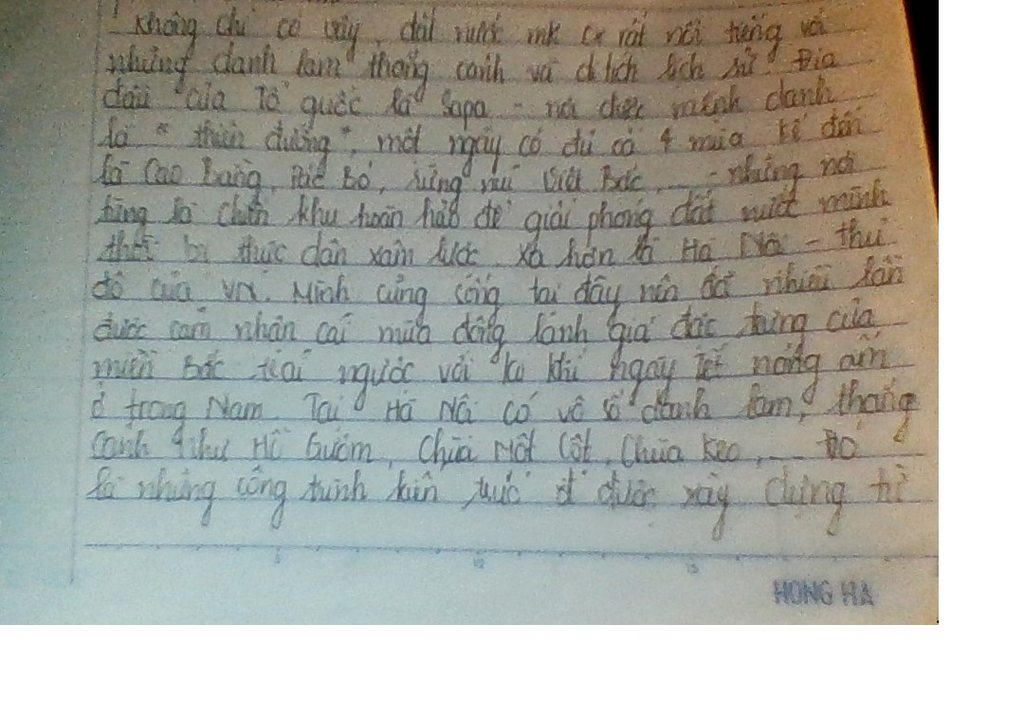 Không chỉ có vậy, đất nước mk cx rất nổi tiếng với
những danh lam thắng cảnh và di tích lịch sử. Địa
đầu của Tổ quốc là Sapa - nơi được mệnh danh
là "thiên đường", một ngày có đủ cả 4 mùa. Kế đến
là Cao Bằng, Pác Bó, rừng núi Việt Bắc, ... những nơi
từng là chiến khu hoàn hảo để giải phóng đất nước mình
thời bị thực dân xâm lược. Xa hơn là Hà Nội - thủ
đô của VN. Mình cũng sống tại đây nên đã nhiều lần
được cảm nhận cái mùa đông lạnh giá đặc trưng của
miền Bắc trái ngược với ko khí ngày Tết nóng ấm
ở trong Nam. Tại Hà Nội có vô số danh lam, thắng
cảnh như Hồ Gươm, Chùa Một Cột, Chùa Keo, ... Đó
là những công trình kiến trúc được xây dựng từ
5 10 15
HONG HA